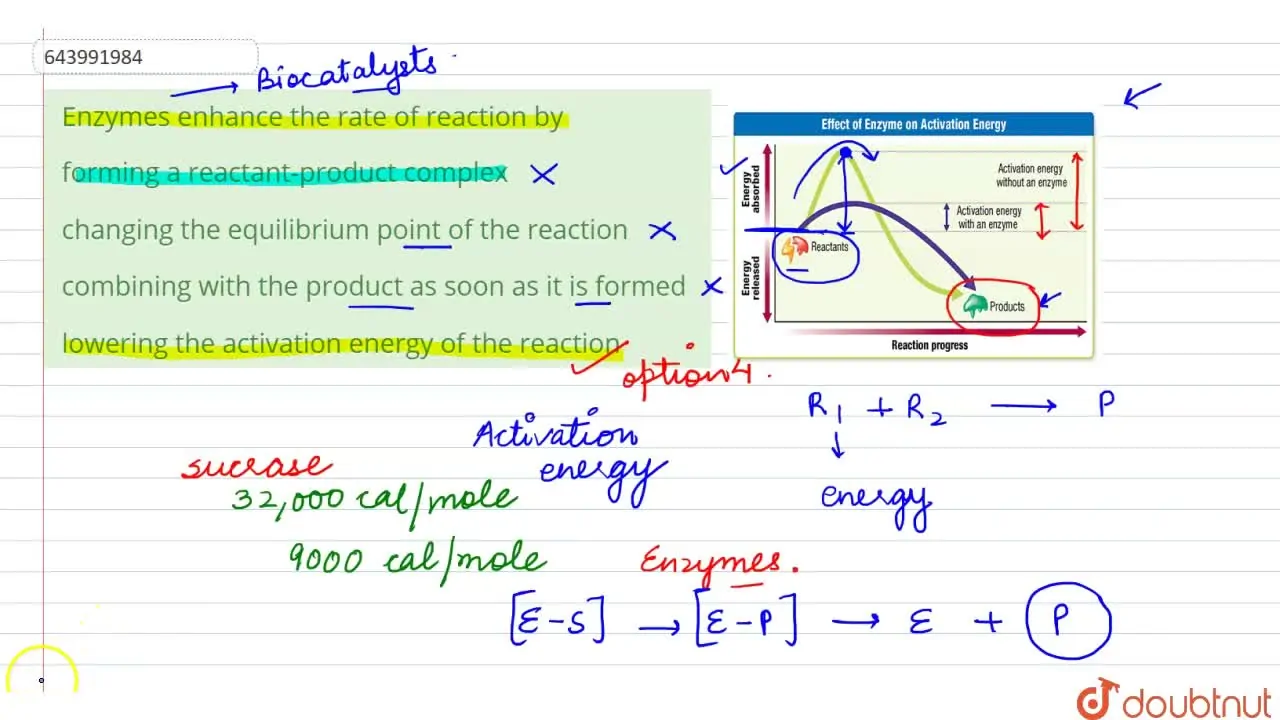 643991984
Biocatalysts
Enzymes enhance the rate of reaction by
forming a reactant-product complex
changing the equilibrium point of the reaction
combining with the product as soon as it is formed
lowering the activation energy of the reaction
option 4.
Effect of Enzyme on Activation Energy
Energy absorbed
Energy released
Activation energy
without an enzyme
Activation energy
with an enzyme
Reactants
Products
Reaction progress
R1 + R2 → P
energy
Activation
energy
sucrase
32,000 cal/mole
9000 cal/mole
Enzymes.
[E-S] → [E-P] → E + P
doubtnut